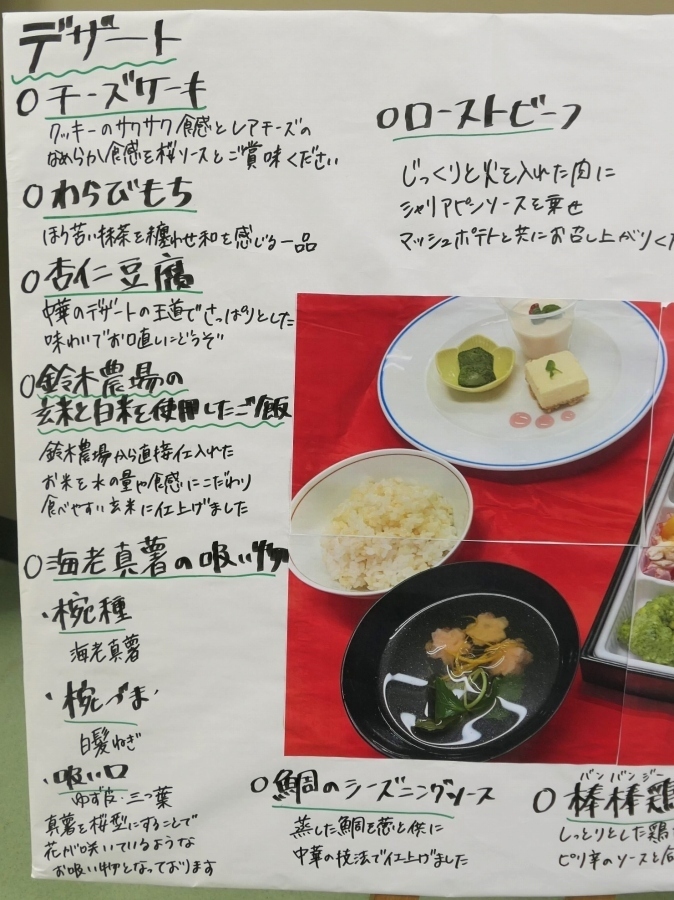 デザート
○チーズケーキ
クッキーのサクサク食感とレアチーズの
なめらか食感を桜ソースとご賞味ください
○わらびもち
ほろ苦い抹茶を纏わせ和を感じる一品
○杏仁豆腐
中華のデザートの王道でさっぱりとした
味わいでお口直しにどうぞ
○鈴木農場の
玄米と白米を使用したご飯
鈴木農場から直接仕入れた
お米を水の量や食感にこだわり
食べやすい玄米に仕上げました
○海老真薯の吸い物
・椀種
海老真薯
・椀づま
白髪ねぎ
・吸い口
ゆず皮・三つ葉
真薯を桜型にすることで
花が咲いているような
お吸い物となっております
○ローストビーフ
じっくりと火を入れた肉に
シャリアピンソースを乗せ
マッシュポテトと共にお召し上がりくだ
○鯛のシーズニングソース
蒸した鯛を葱と共に
中華の技法で仕上げました
バンバンジー
○棒棒鶏
しっとりとした鶏
ピリ辛のソースと